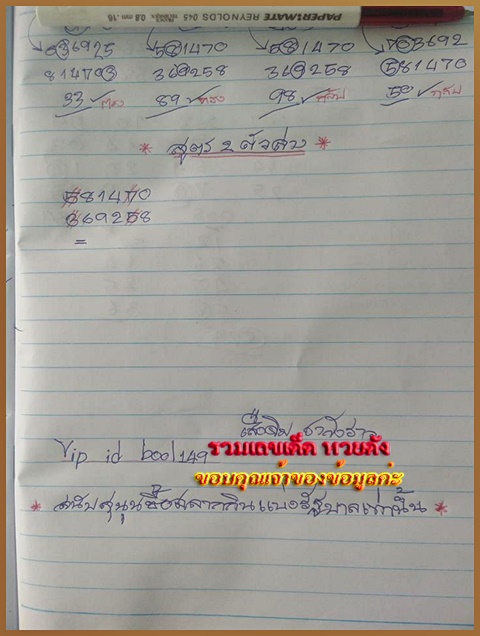 PAPER:MATE REYNOLDS 045 0.8 mm .16
036925 581470 581470 703692
814703 369258 369258 581470
33 ✓ ตรง 89 ✓ ตรง 98 ✓ กลับ 50 ✓ กลับ
* สูตร 2 ตัวล่าง *
581470
369258
=
Vip id bool149
รวมเลขเด็ด หวยดัง
ขอบคุณเจ้าของข้อมูลค่ะ
* สนับสนุนซื้อสลากกินแบ่งรัฐบาลเท่านั้น *